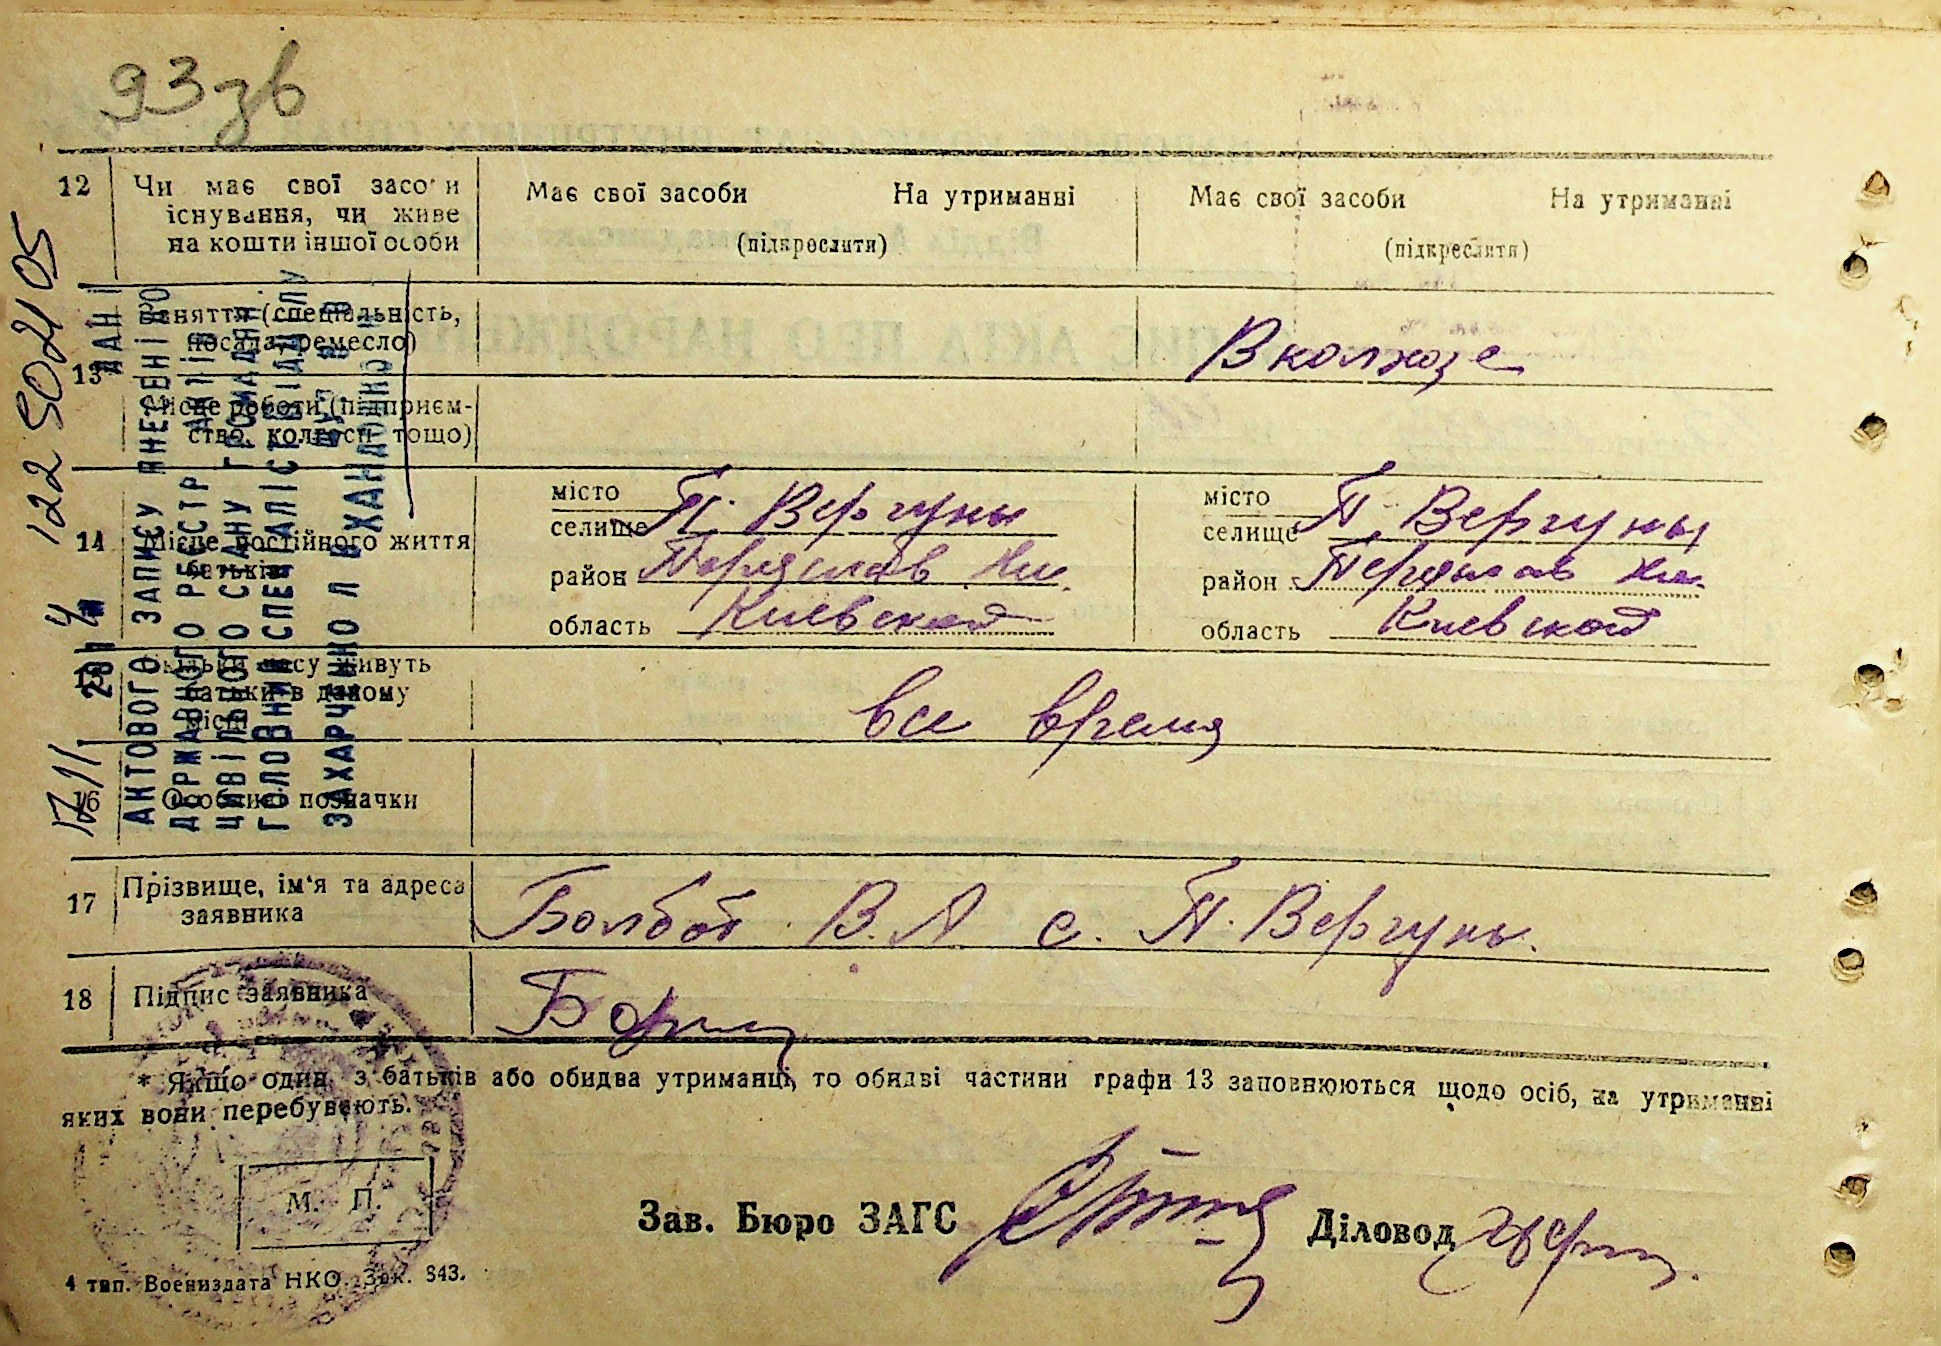 93зв
12 Чи має свої засоби Має свої засоби На утриманні Має свої засоби На утриманні
існування, чи живе
на кошти іншої особи (підкреслити) (підкреслити)
13 Заняття (спеціальність,
посада, ремесло) В колхозе
Місце роботи (підприєм-
ство, колгосп тощо)
14 Місце постійного життя
батьків
місто місто
селище П. Вергуны селище П. Вергуны
район Переяслав Хм. район Переяслав Хм.
область Киевской область Киевской
15 Скільки часу живуть
батьки в даному
місці все время
16 Особливі позначки
17 Прізвище, ім'я та адреса
заявника Болбот В.А с. П. Вергуны.
18 Підпис заявника
* Якщо один з батьків або обидва утриманці, то обидві частини графи 13 заповнюються щодо осіб, на утриманні
яких вони перебувають.
М. П.
Зав. Бюро ЗАГС Діловод
4 тип. Воениздата НКО. Зак. 843.
ДАНІ
АКТОВОГО ЗАПИСУ ВНЕСЕНІ ДО
ДЕРЖАВНОГО РЕЄСТР
ЦИВІЛЬНОГО СТАНУ ГРОМАДЯН
ГОЛОВНИЙ СПЕЦІАЛІСТ ВІДДІЛУ
ЗАХАРЧЕНКО Л В